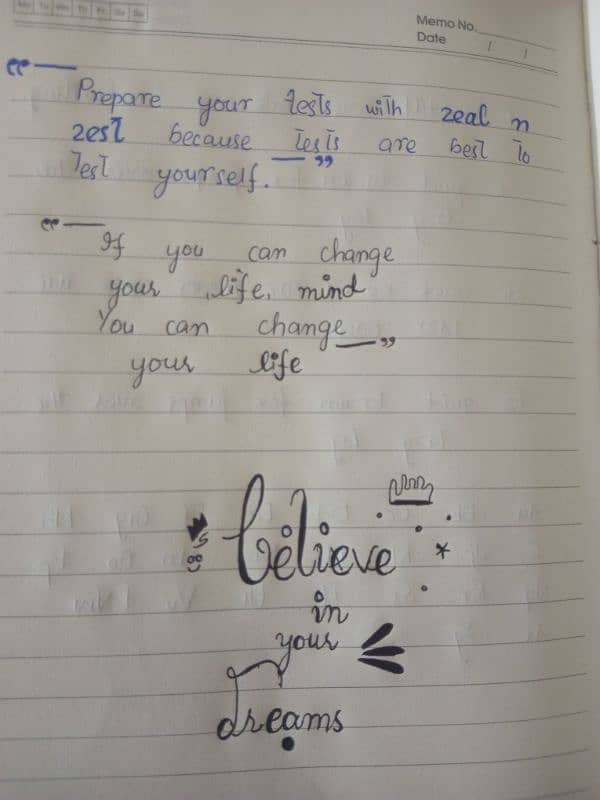 Memo No.
Date / /
“— Prepare your tests with zeal n
zest because tests are best to
Test yourself. —”
“— If you can change
your life, mind
You can change
your life —”
believe
in
your
dreams